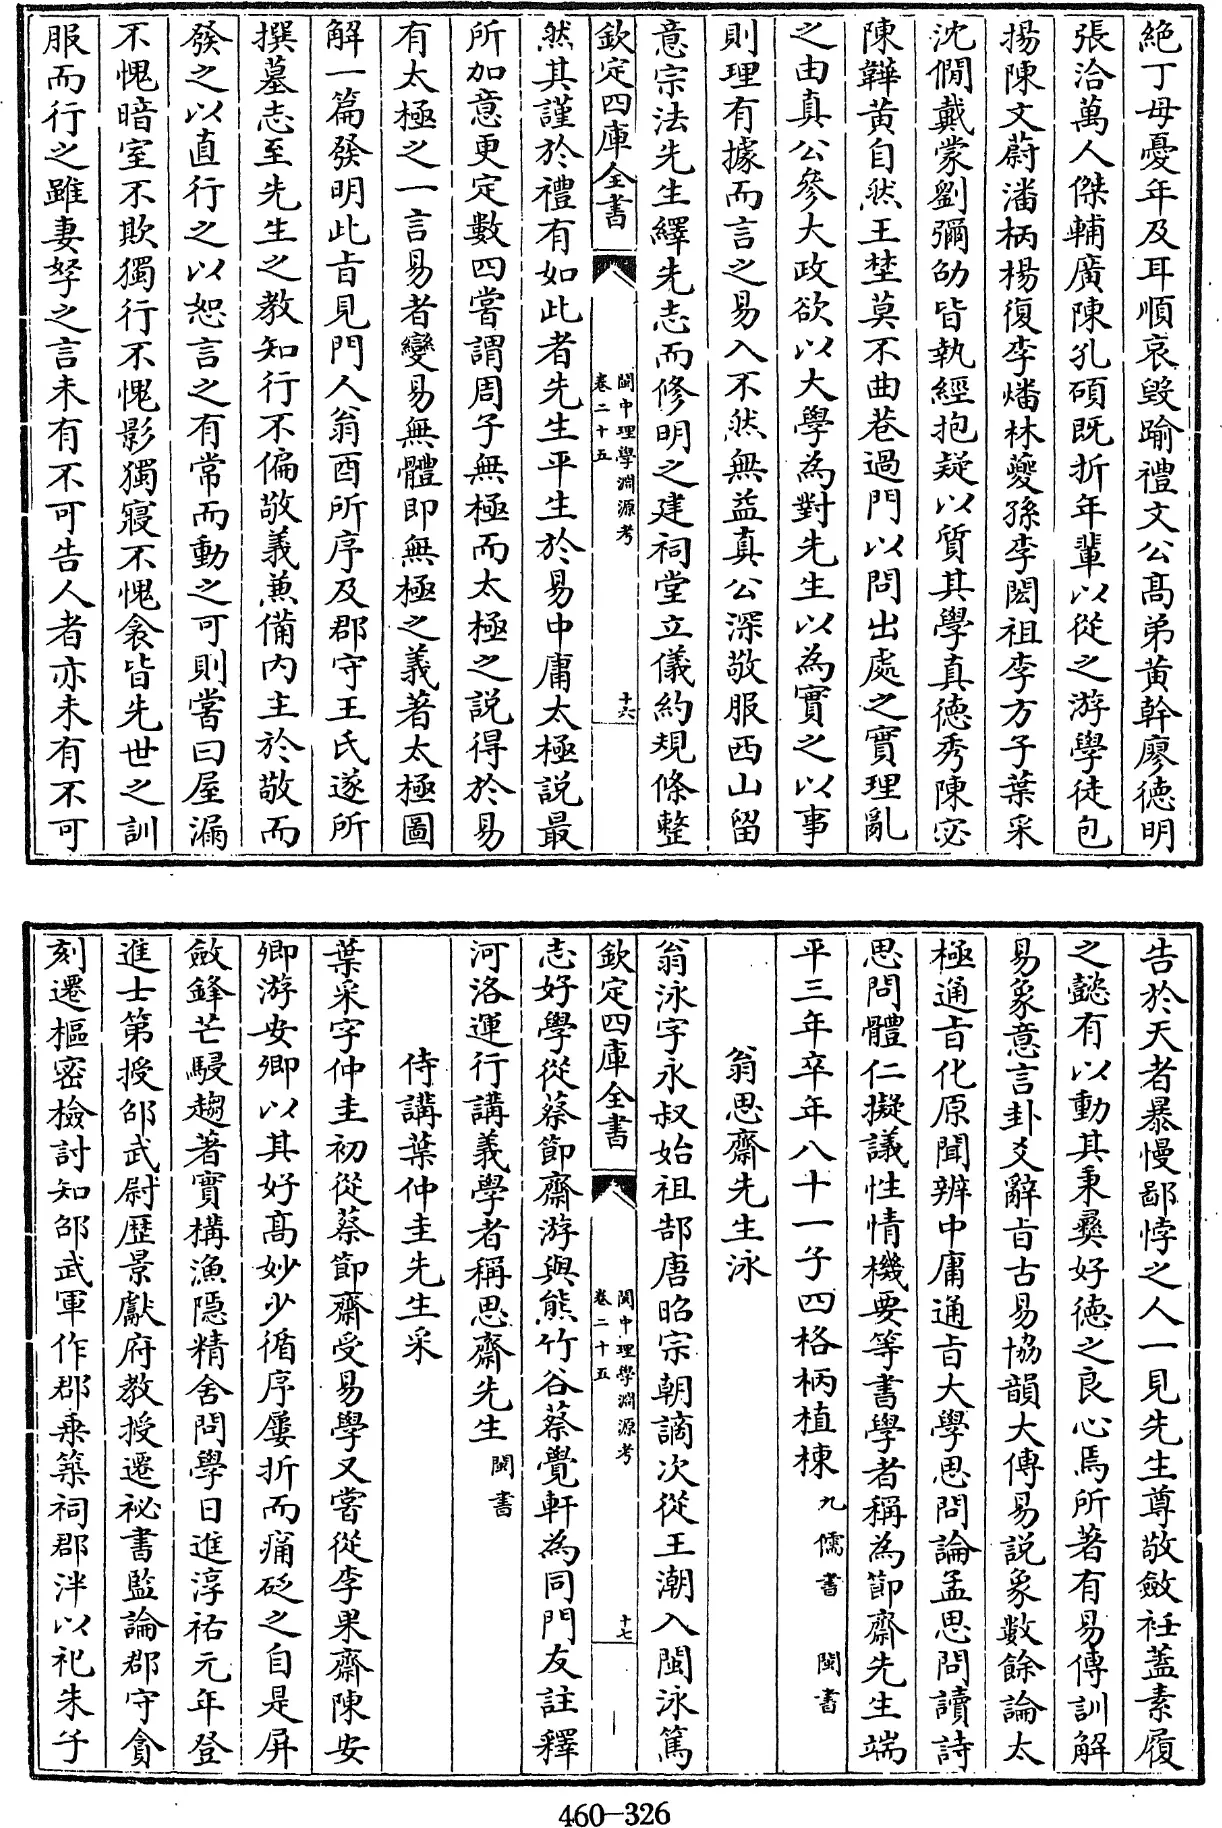 絶丁母憂年及耳順哀毀踰禮文公髙弟黄幹廖德明
張洽萬人傑輔廣陳孔碩既折年輩以從之游學徒包
揚陳文蔚潘柄楊復李燔林夔孫李閎祖李方子葉采
沈僩戴蒙劉彌劭皆執經抱疑以質其學真德秀陳宓
陳韡黄自然王埜莫不曲巷過門以問出處之實理亂
之由真公參大政欲以大學為對先生以為實之以事
則理有據而言之易入不然無益真公深敬服西山留
意宗法先生繹先志而修明之建祠堂立儀約規條整
欽定四庫全書
閩中理學淵源考
卷二十五
十六
然其謹於禮有如此者先生平生於易中庸太極説最
所加意更定數四嘗謂周子無極而太極之説得於易
有太極之一言易者變易無體即無極之義著太極圖
解一篇發明此㫖見門人翁酉所序及郡守王氏遂所
撰墓志至先生之教知行不偏敬義兼備内主於敬而
發之以直行之以恕言之有常而動之可則嘗曰屋漏
不愧暗室不欺獨行不愧影獨寢不愧衾皆先世之訓
服而行之雖妻孥之言未有不可告人者亦未有不可
告於天者暴慢鄙悖之人一見先生尊敬斂衽蓋素履
之懿有以動其秉彞好德之良心焉所著有易傳訓解
易象意言卦爻辭㫖古易協韻大傳易説象數餘論太
極通㫖化原聞辨中庸通㫖大學思問論孟思問讀詩
思問體仁擬議性情機要等書學者稱為節齋先生端
平三年卒年八十一子四格柄植棟 九儒書 閩書
翁思齋先生泳
翁泳字永叔始祖郜唐昭宗朝謫次從王潮入閩泳篤
欽定四庫全書
閩中理學淵源考
卷二十五
十七
志好學從蔡節齋游與熊竹谷蔡覺軒為同門友註釋
河洛運行講義學者稱思齋先生 閩書
侍講葉仲圭先生采
葉采字仲圭初從蔡節齋受易學又嘗從李果齋陳安
卿游安卿以其好髙妙少循序屢折而痛砭之自是屏
斂鋒芒駸趨著實構漁隱精舍問學日進淳祐元年登
進士第授邵武尉歴景獻府教授遷祕書監論郡守貪
刻遷樞密檢討知邵武軍作郡乗築祠郡泮以祀朱子
460-326